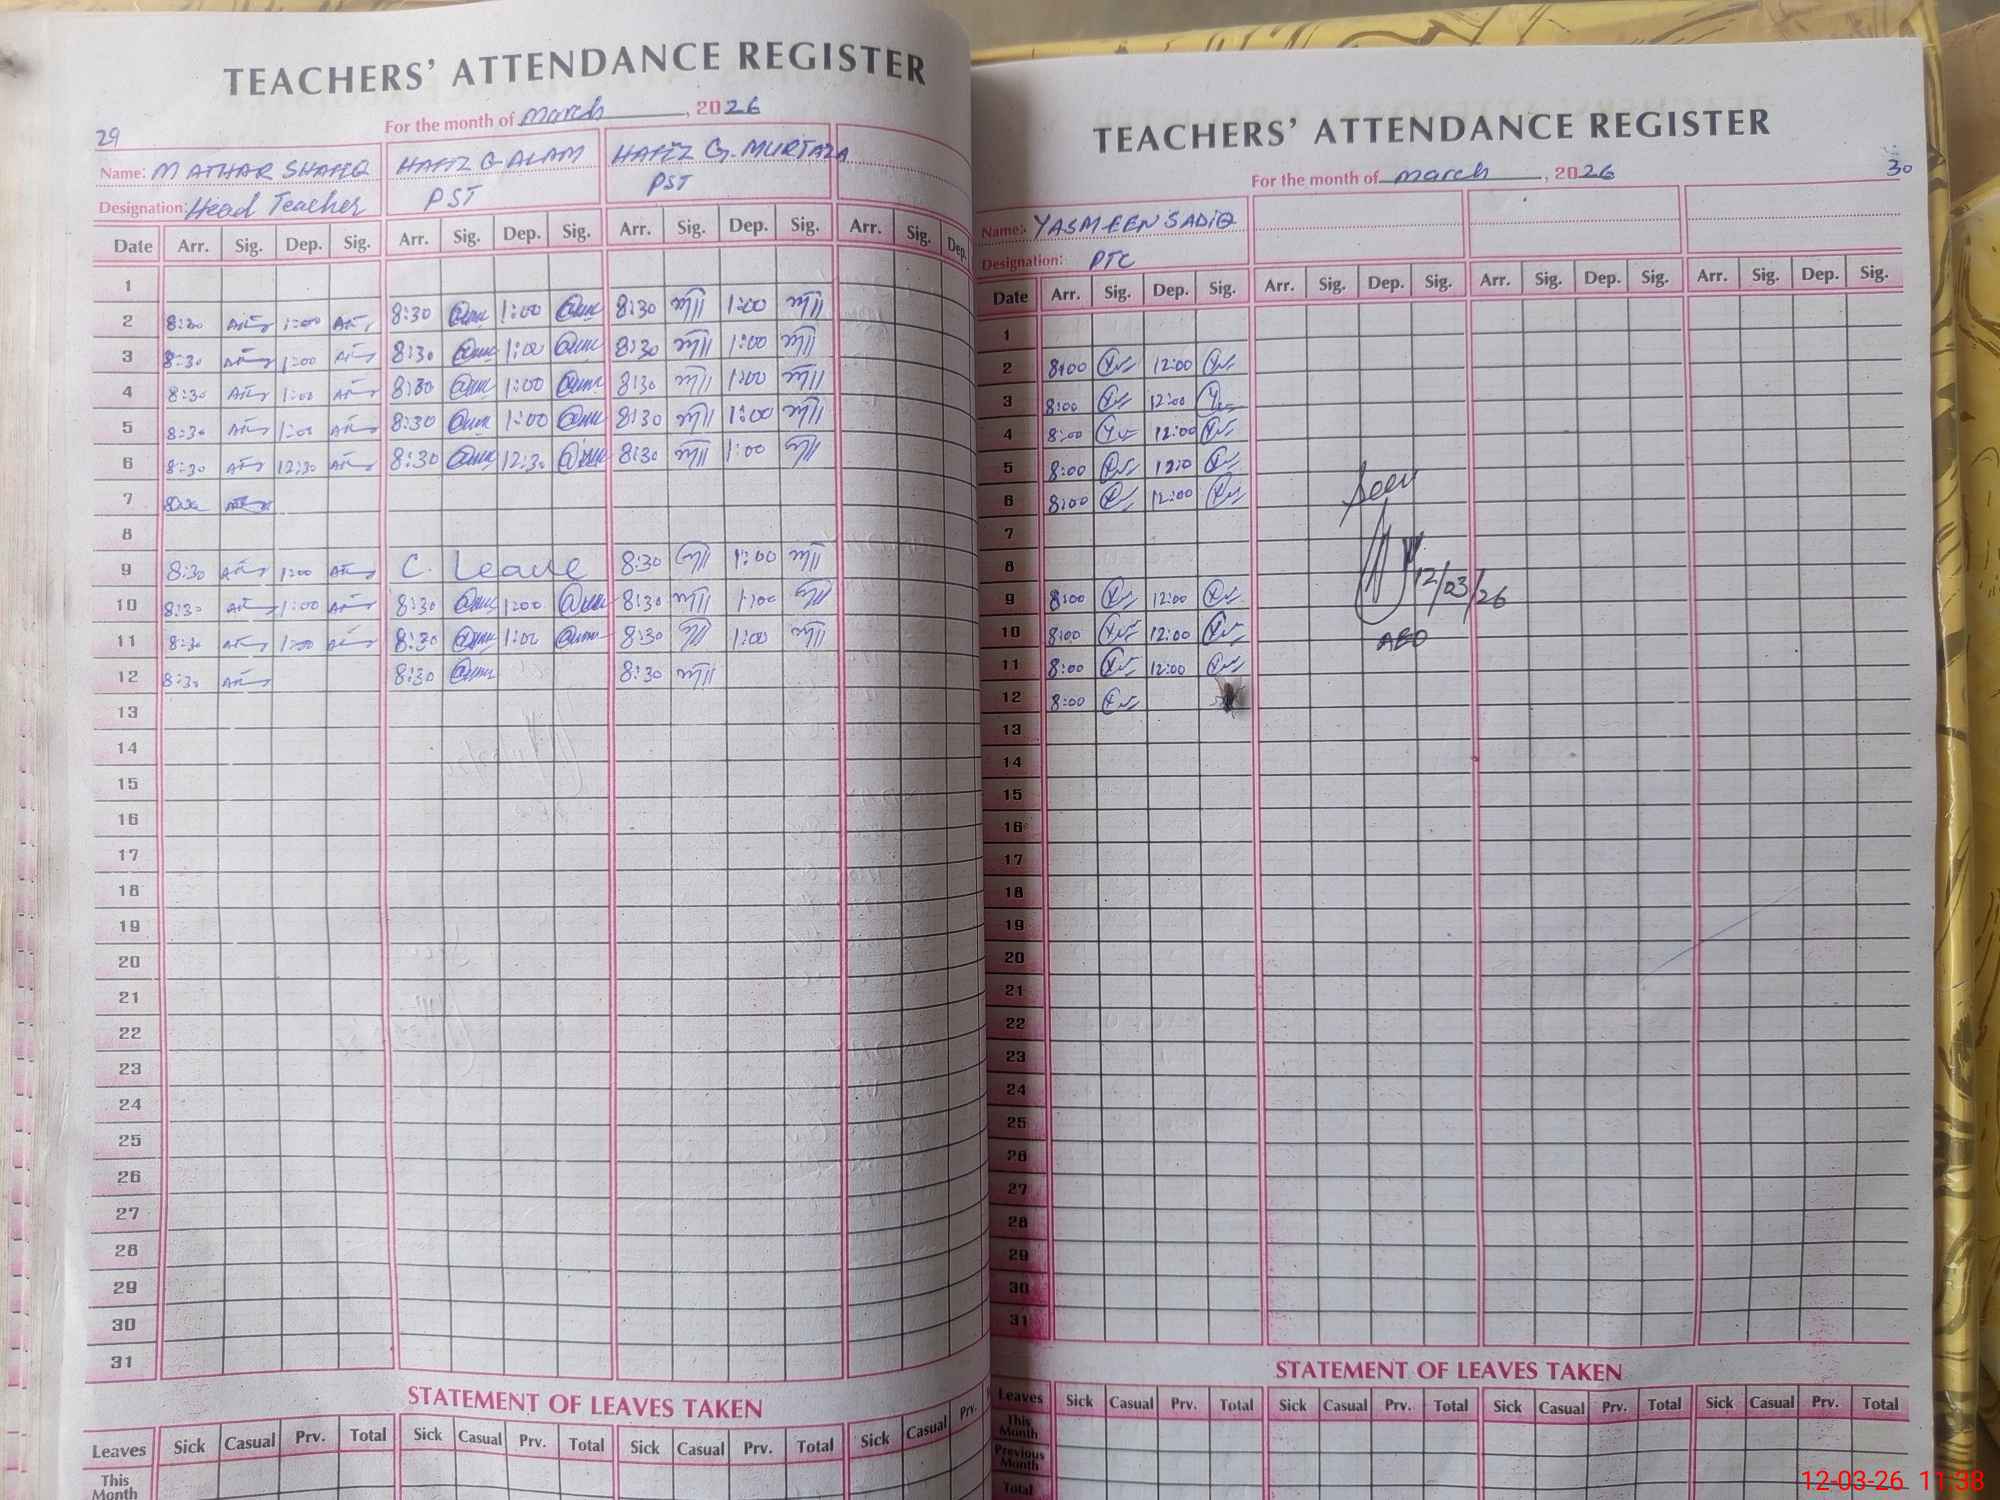 TEACHERS' ATTENDANCE REGISTER
For the month of March, 2026
29
Name: M ATHAR SHAFIQ HAFIZ G ALAM HAFIZ G. MURTAZA
Designation: Head Teacher PST PST
Date Arr. Sig. Dep. Sig. Arr. Sig. Dep. Sig. Arr. Sig. Dep. Sig. Arr. Sig. Dep.
1
2 8:30 1:00 8:30 1:00 8:30 1:00
3 8:30 1:00 8:30 1:00 8:30 1:00
4 8:30 1:00 8:30 1:00 8:30 1:00
5 8:30 1:00 8:30 1:00 8:30 1:00
6 8:30 12:30 8:30 12:30 8:30 1:00
7
8
9 8:30 1:00 C. Leave 8:30 1:00
10 8:30 1:00 8:30 1:00 8:30 1:00
11 8:30 1:00 8:30 1:00 8:30 1:00
12 8:30 8:30 8:30
13
14
15
16
17
18
19
20
21
22
23
24
25
26
27
28
29
30
31
STATEMENT OF LEAVES TAKEN
Leaves Sick Casual Prv. Total Sick Casual Prv. Total Sick Casual Prv. Total Sick Casual Prv.
This Month
TEACHERS' ATTENDANCE REGISTER
For the month of March, 2026
30
Name: YASMEEN SADIQ
Designation: PTC
Date Arr. Sig. Dep. Sig. Arr. Sig. Dep. Sig. Arr. Sig. Dep. Sig. Arr. Sig. Dep. Sig.
1
2 8:00 12:00
3 8:00 12:00
4 8:00 12:00
5 8:00 12:0
6 8:00 12:00
Seen
7
8
12/03/26
9 8:00 12:00
10 8:00 12:00
AEO
11 8:00 12:00
12 8:00
13
14
15
16
17
18
19
20
21
22
23
24
25
26
27
28
29
30
31
STATEMENT OF LEAVES TAKEN
Leaves Sick Casual Prv. Total Sick Casual Prv. Total Sick Casual Prv. Total Sick Casual Prv. Total
This Month
Previous Month
Total
12-03-26 11:38